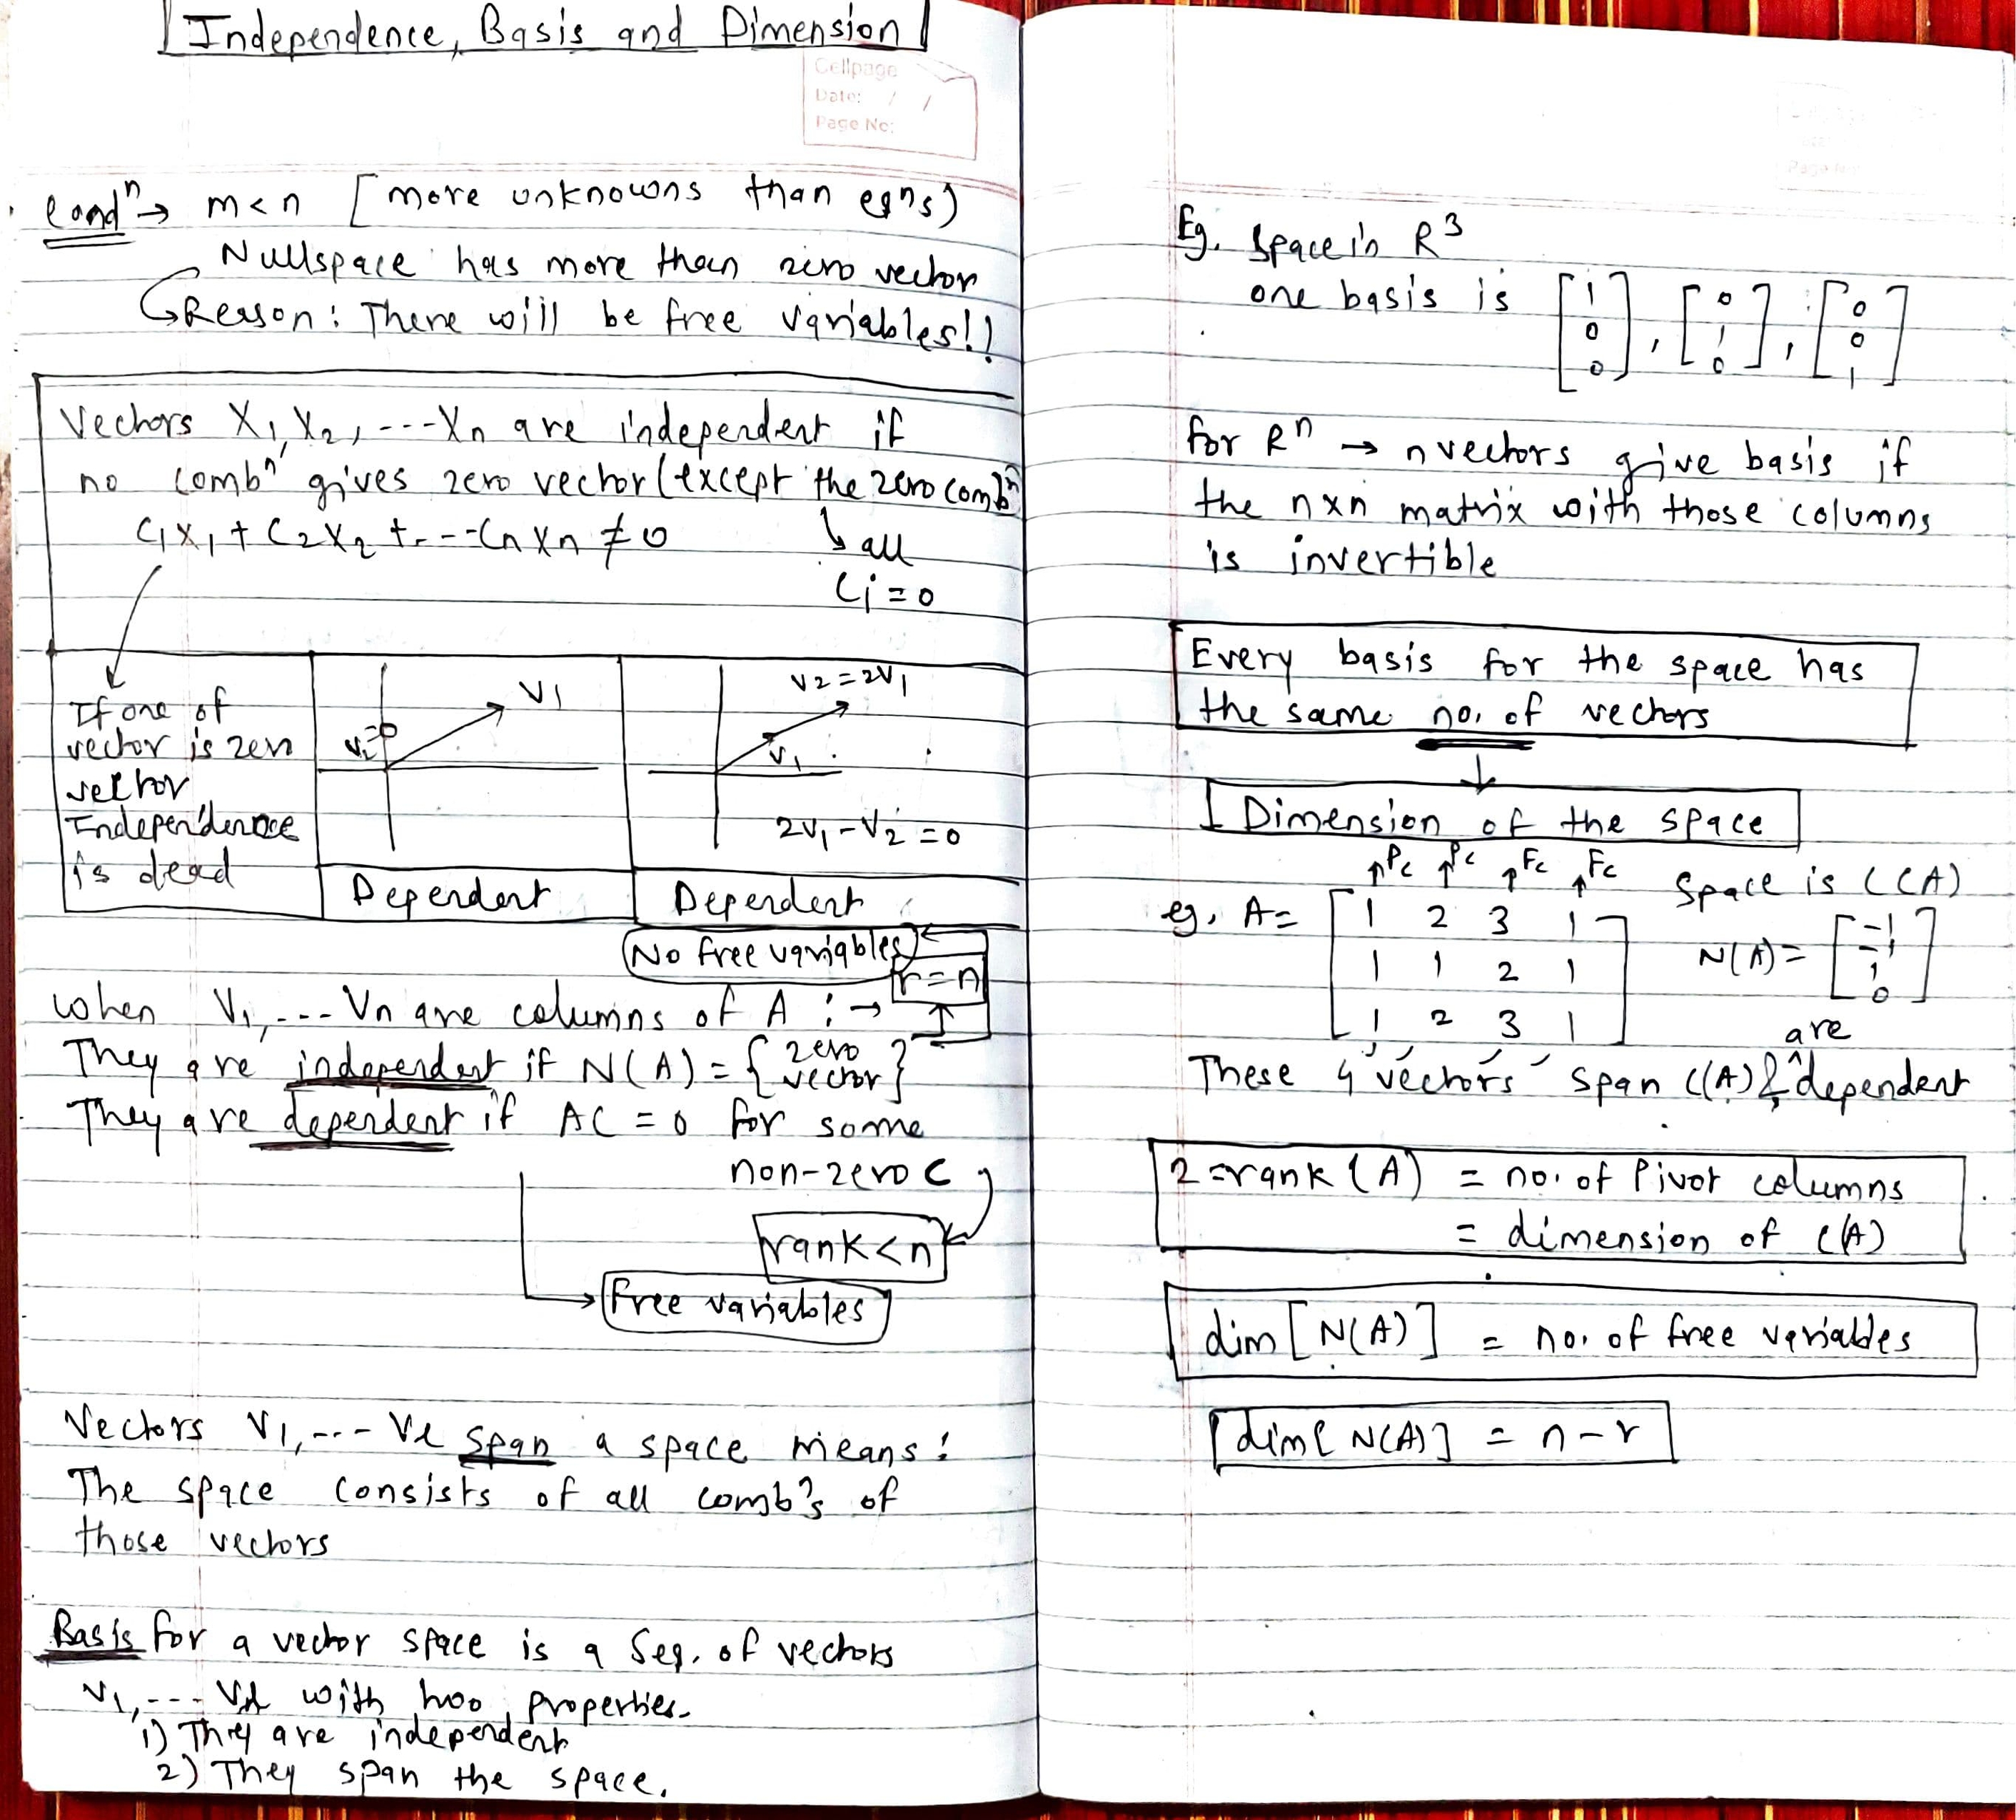 Independence, Basis and Dimension
Cellpage
Date: / /
Page No:
Condⁿ → m<n [more unknowns than eqns)
Nullspace has more than zero vector
Reason: There will be free variables!!
Vectors X₁, X₂, ---Xn are independent if
no combⁿ gives zero vector (except the zero combⁿ
C₁X₁ + C₂X₂ + ---CnXn ≠ 0
all
Ci = 0
If one of
vector is zero
vector
Independence
is dead
V1
V2=0
Dependent
V2 = 2V1
V1
2V₁ - V₂ = 0
Dependent
No free variables
r=n
when V₁, --- Vn are columns of A : →
They are independent if N(A) = { zero vector }
They are dependent if AC = 0 for some
non-zero C
rank<n
free variables
Vectors V₁, --- Vl span a space means:
The space consists of all combⁿs of
those vectors
Basis for a vector space is a Seq. of vectors
V₁, --- Vd with two properties-
1) They are independent
2) They span the space.
Eg. Space in R³
one basis is [1 0 0], [0 1 0], [0 0 1]
for Rⁿ → n vectors give basis if
the nxn matrix with those columns
is invertible
Every basis for the space has
the same no. of vectors
Dimension of the space
↑Pc ↑Pc ↑Fc ↑Fc
Space is C(A)
eg. A= [1 2 3 1
1 1 2 1
1 2 3 1]
N(A) = [-1 -1 1 0]
These 4 vectors span C(A) & are dependent
2 = rank (A) = no. of Pivot columns
= dimension of C(A)
dim [N(A)] = no. of free variables
dim[ N(A)] = n-r